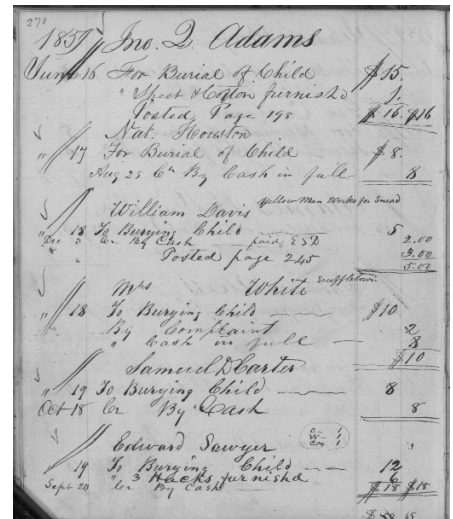 270
1857 Jno. Q. Adams
June 16 For Burial of Child $15.
" Sheet & Cotton furnishd 1.
Posted Page 198 $16. $16
Nat. Houston
" 17 For Burial of Child $8.
Aug 25 Cr By Cash in full 8
William Davis Yellow Man Works for Snead
" 18 To Burying Child 5
Dec 3 Cr By Cash paid ESD 2.00
" " Posted page 245 3.00
5.00
Mrs White Scuffletown
" 18 To Burying Child $10
By Complaint 2
" Cash in full 8
$10
Samuel D Carter
" 19 To Burying Child 8
Oct 18 Cr By Cash 8
Edward Sawyer
" 19 To Burying Child 12
" 3 Hacks furnishd 6
Sept 20 Cr By Cash $18 $18